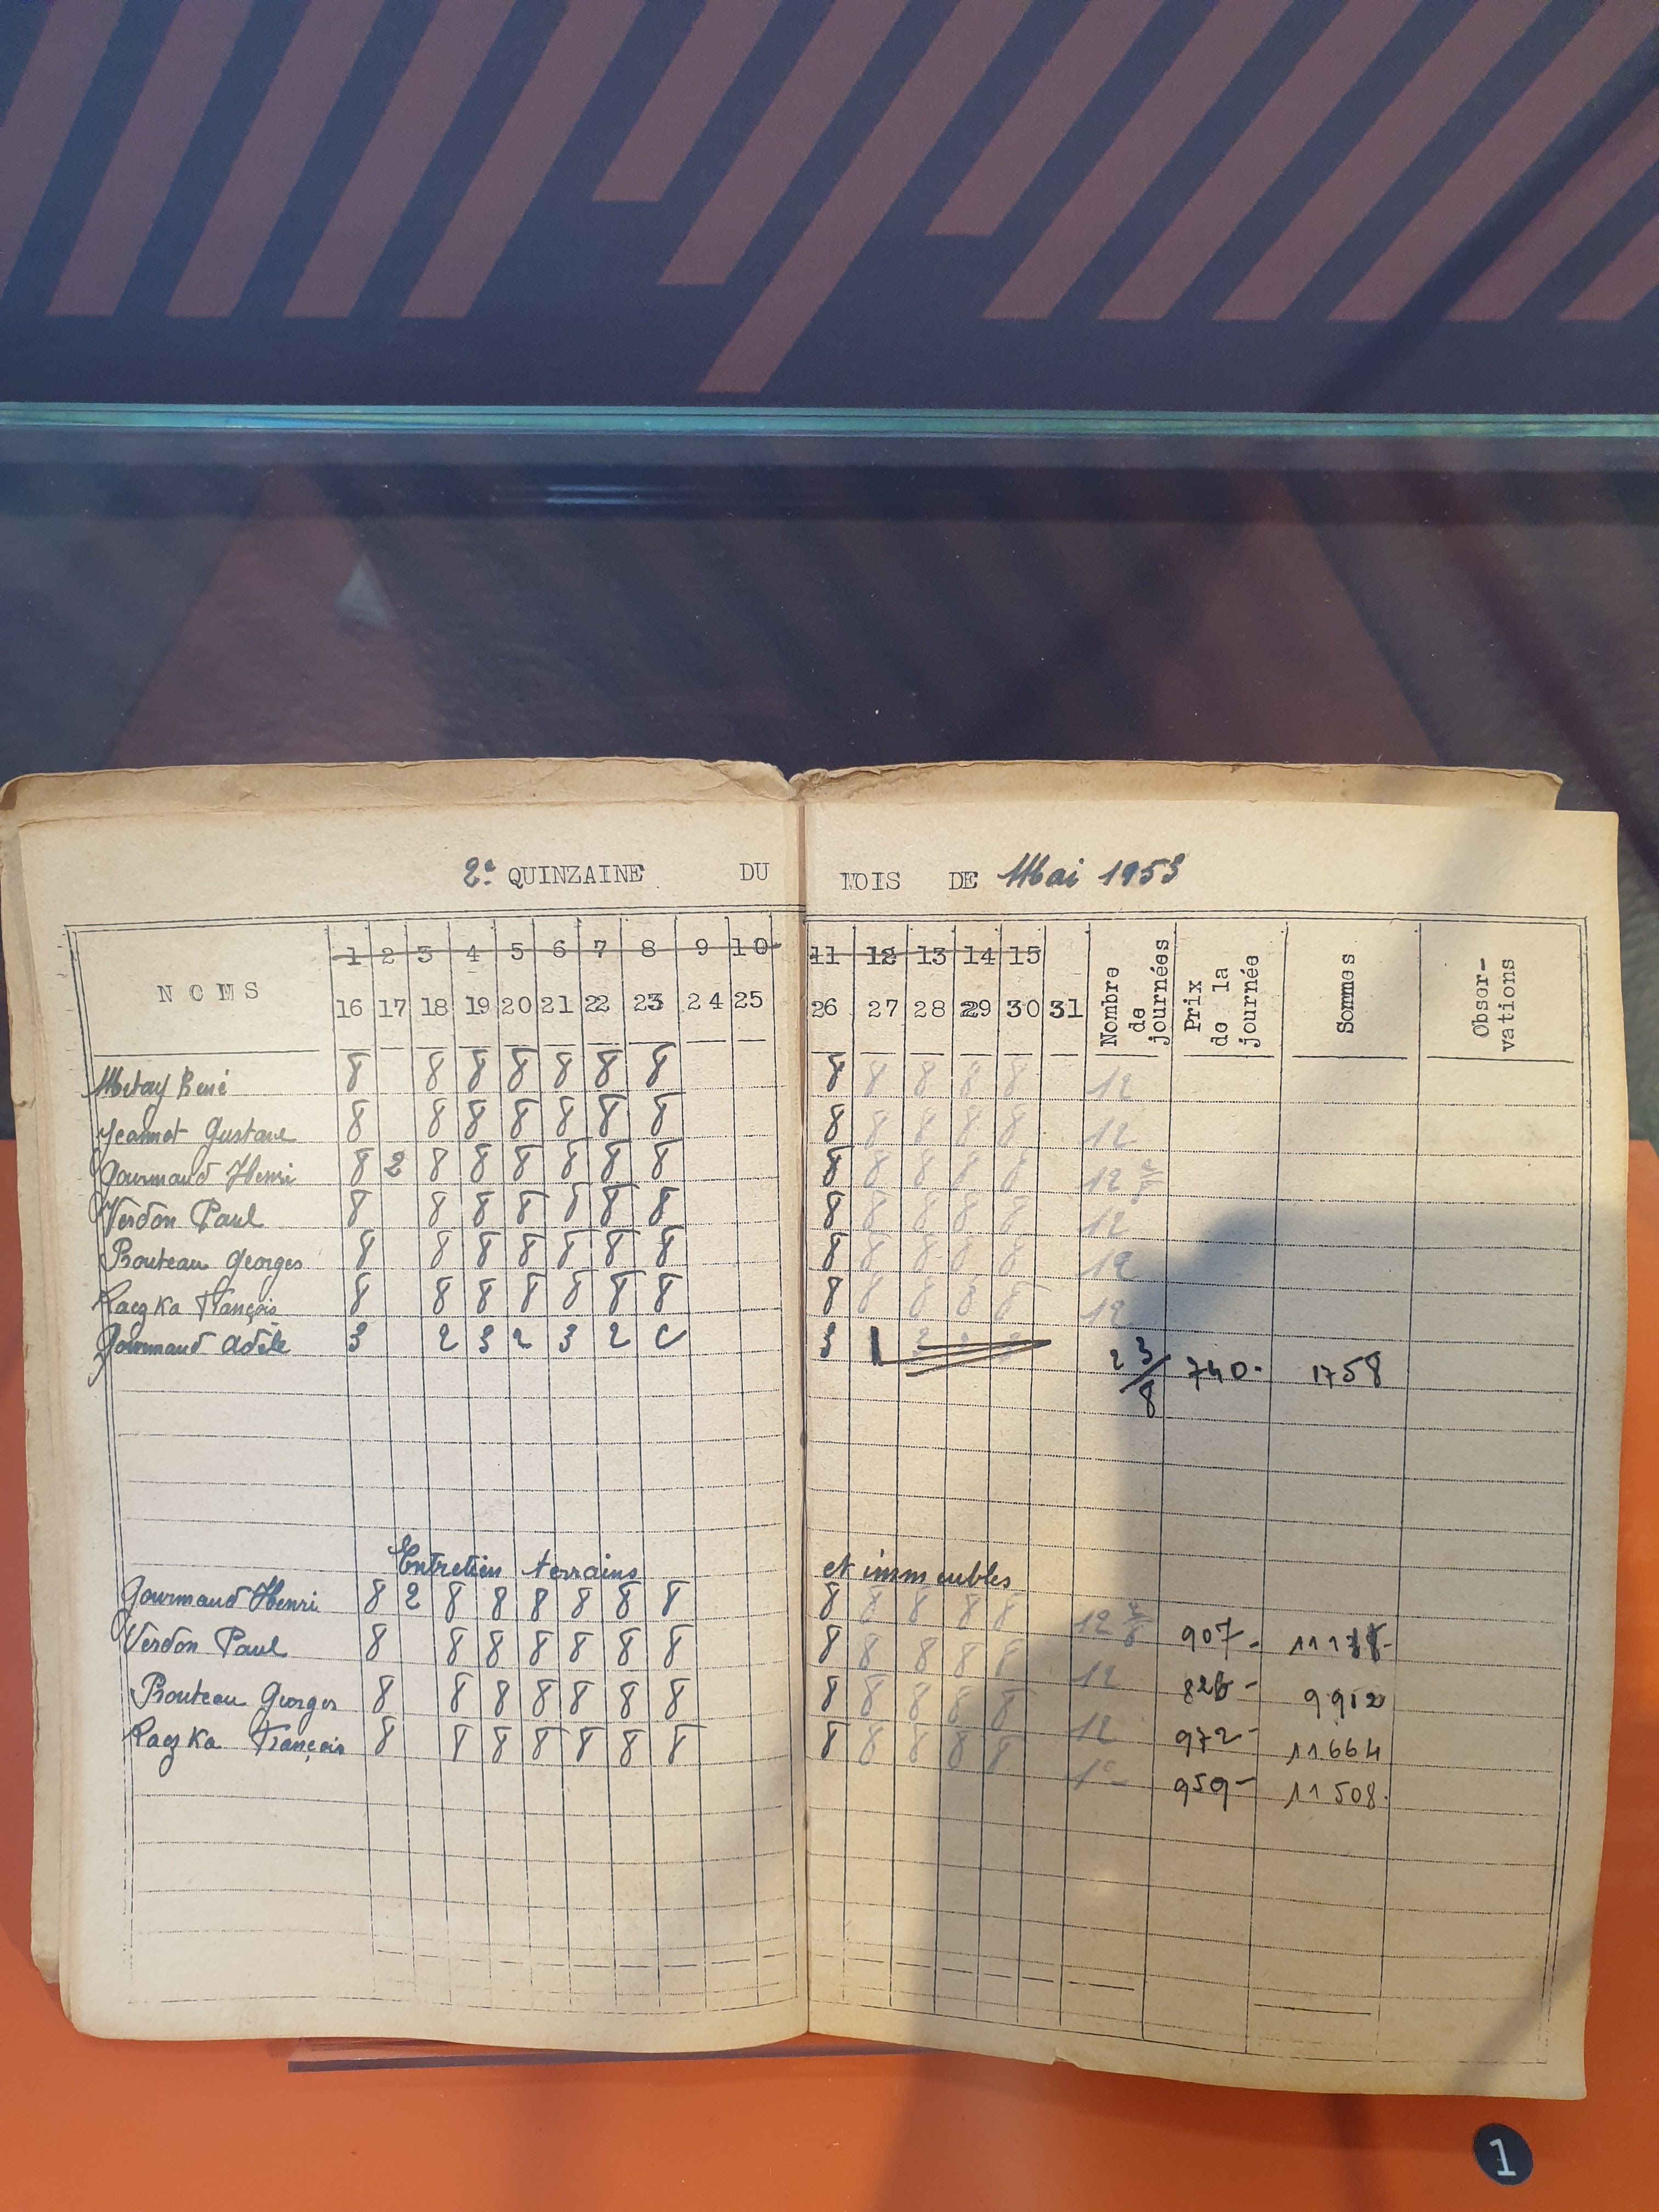 2e QUINZAINE DU MOIS DE Mai 1953
1 2 3 4 5 6 7 8 9 10 11 12 13 14 15
NOMS 16 17 18 19 20 21 22 23 24 25 26 27 28 29 30 31 Nombre de journées Prix de la journée Sommes Obser-vations
Metay René 8 8 8 8 8 8 8 8 8 8 8 8 12
Jeannot Gustave 8 8 8 8 8 8 8 8 8 8 8 8 12
Gourmaud Henri 8 2 8 8 8 8 8 8 8 8 8 8 8 12 2/8
Verdon Paul 8 8 8 8 8 8 8 8 8 8 8 8 12
Routeau Georges 8 8 8 8 8 8 8 8 8 8 8 8 12
Raczka François 8 8 8 8 8 8 8 8 8 8 8 8 12
Gourmaud Adèle 3 2 3 2 3 2 3 1 2 3/8 740- 1758
Entretien terrains et immeubles
Gourmaud Henri 8 2 8 8 8 8 8 8 8 8 8 8 8 12 2/8 907-
Verdon Paul 8 8 8 8 8 8 8 8 8 8 8 8 12 826- 9912
Routeau Georges 8 8 8 8 8 8 8 8 8 8 8 8 12 972- 11664
Raczka François 8 8 8 8 8 8 8 8 8 8 8 8 959- 11508.
1